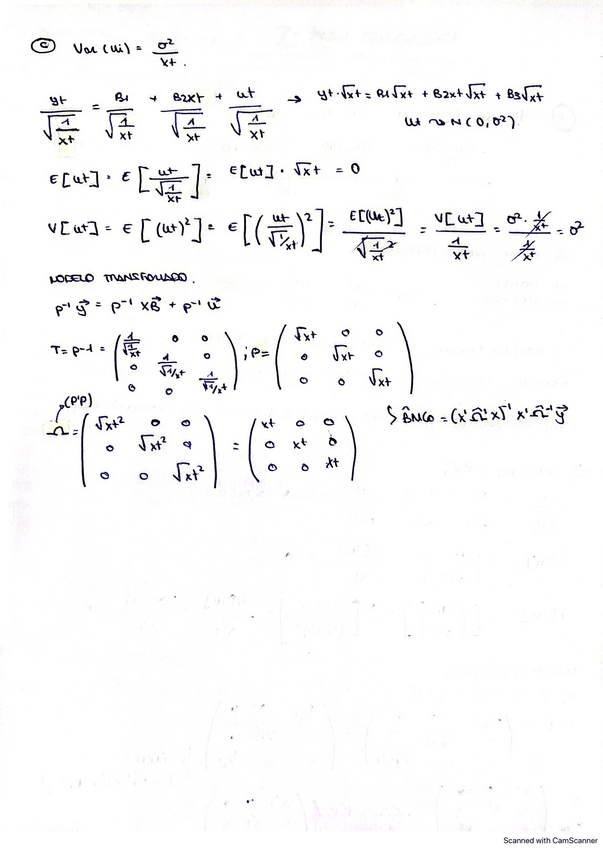 (c) Var (ui) = σ²/xt.
yt/√(1/xt) = B1/√(1/xt) + B2xt/√(1/xt) + ut/√(1/xt) → yt·√xt = B1√xt + B2xt√xt + B3√xt
ut ~ N(0,σ²)
E[ut] = E[ut/√(1/xt)] = E[ut]·√xt = 0
V[ut] = E[(ut)²] = E[(ut/√(1/xt))²] = E[(ut)²]/√(1/xt)² = V[ut]/(1/xt) = σ²·(1/xt)/(1/xt) = σ²
MODELO TRANSFORMADO.
p⁻¹ y⃗ = p⁻¹ xB⃗ + p⁻¹ u⃗
T = p⁻¹ = (1/√(1/xt) 0 0; 0 1/√(1/xt) 0; 0 0 1/√(1/xt)) ; p = (√xt 0 0; 0 √xt 0; 0 0 √xt)
(p'p)
Ω = (√xt² 0 0; 0 √xt² 0; 0 0 √xt²) = (xt 0 0; 0 xt 0; 0 0 xt)
B̂MCG = (x' Ω̂⁻¹ x)⁻¹ x' Ω̂⁻¹ y⃗
Scanned with CamScanner